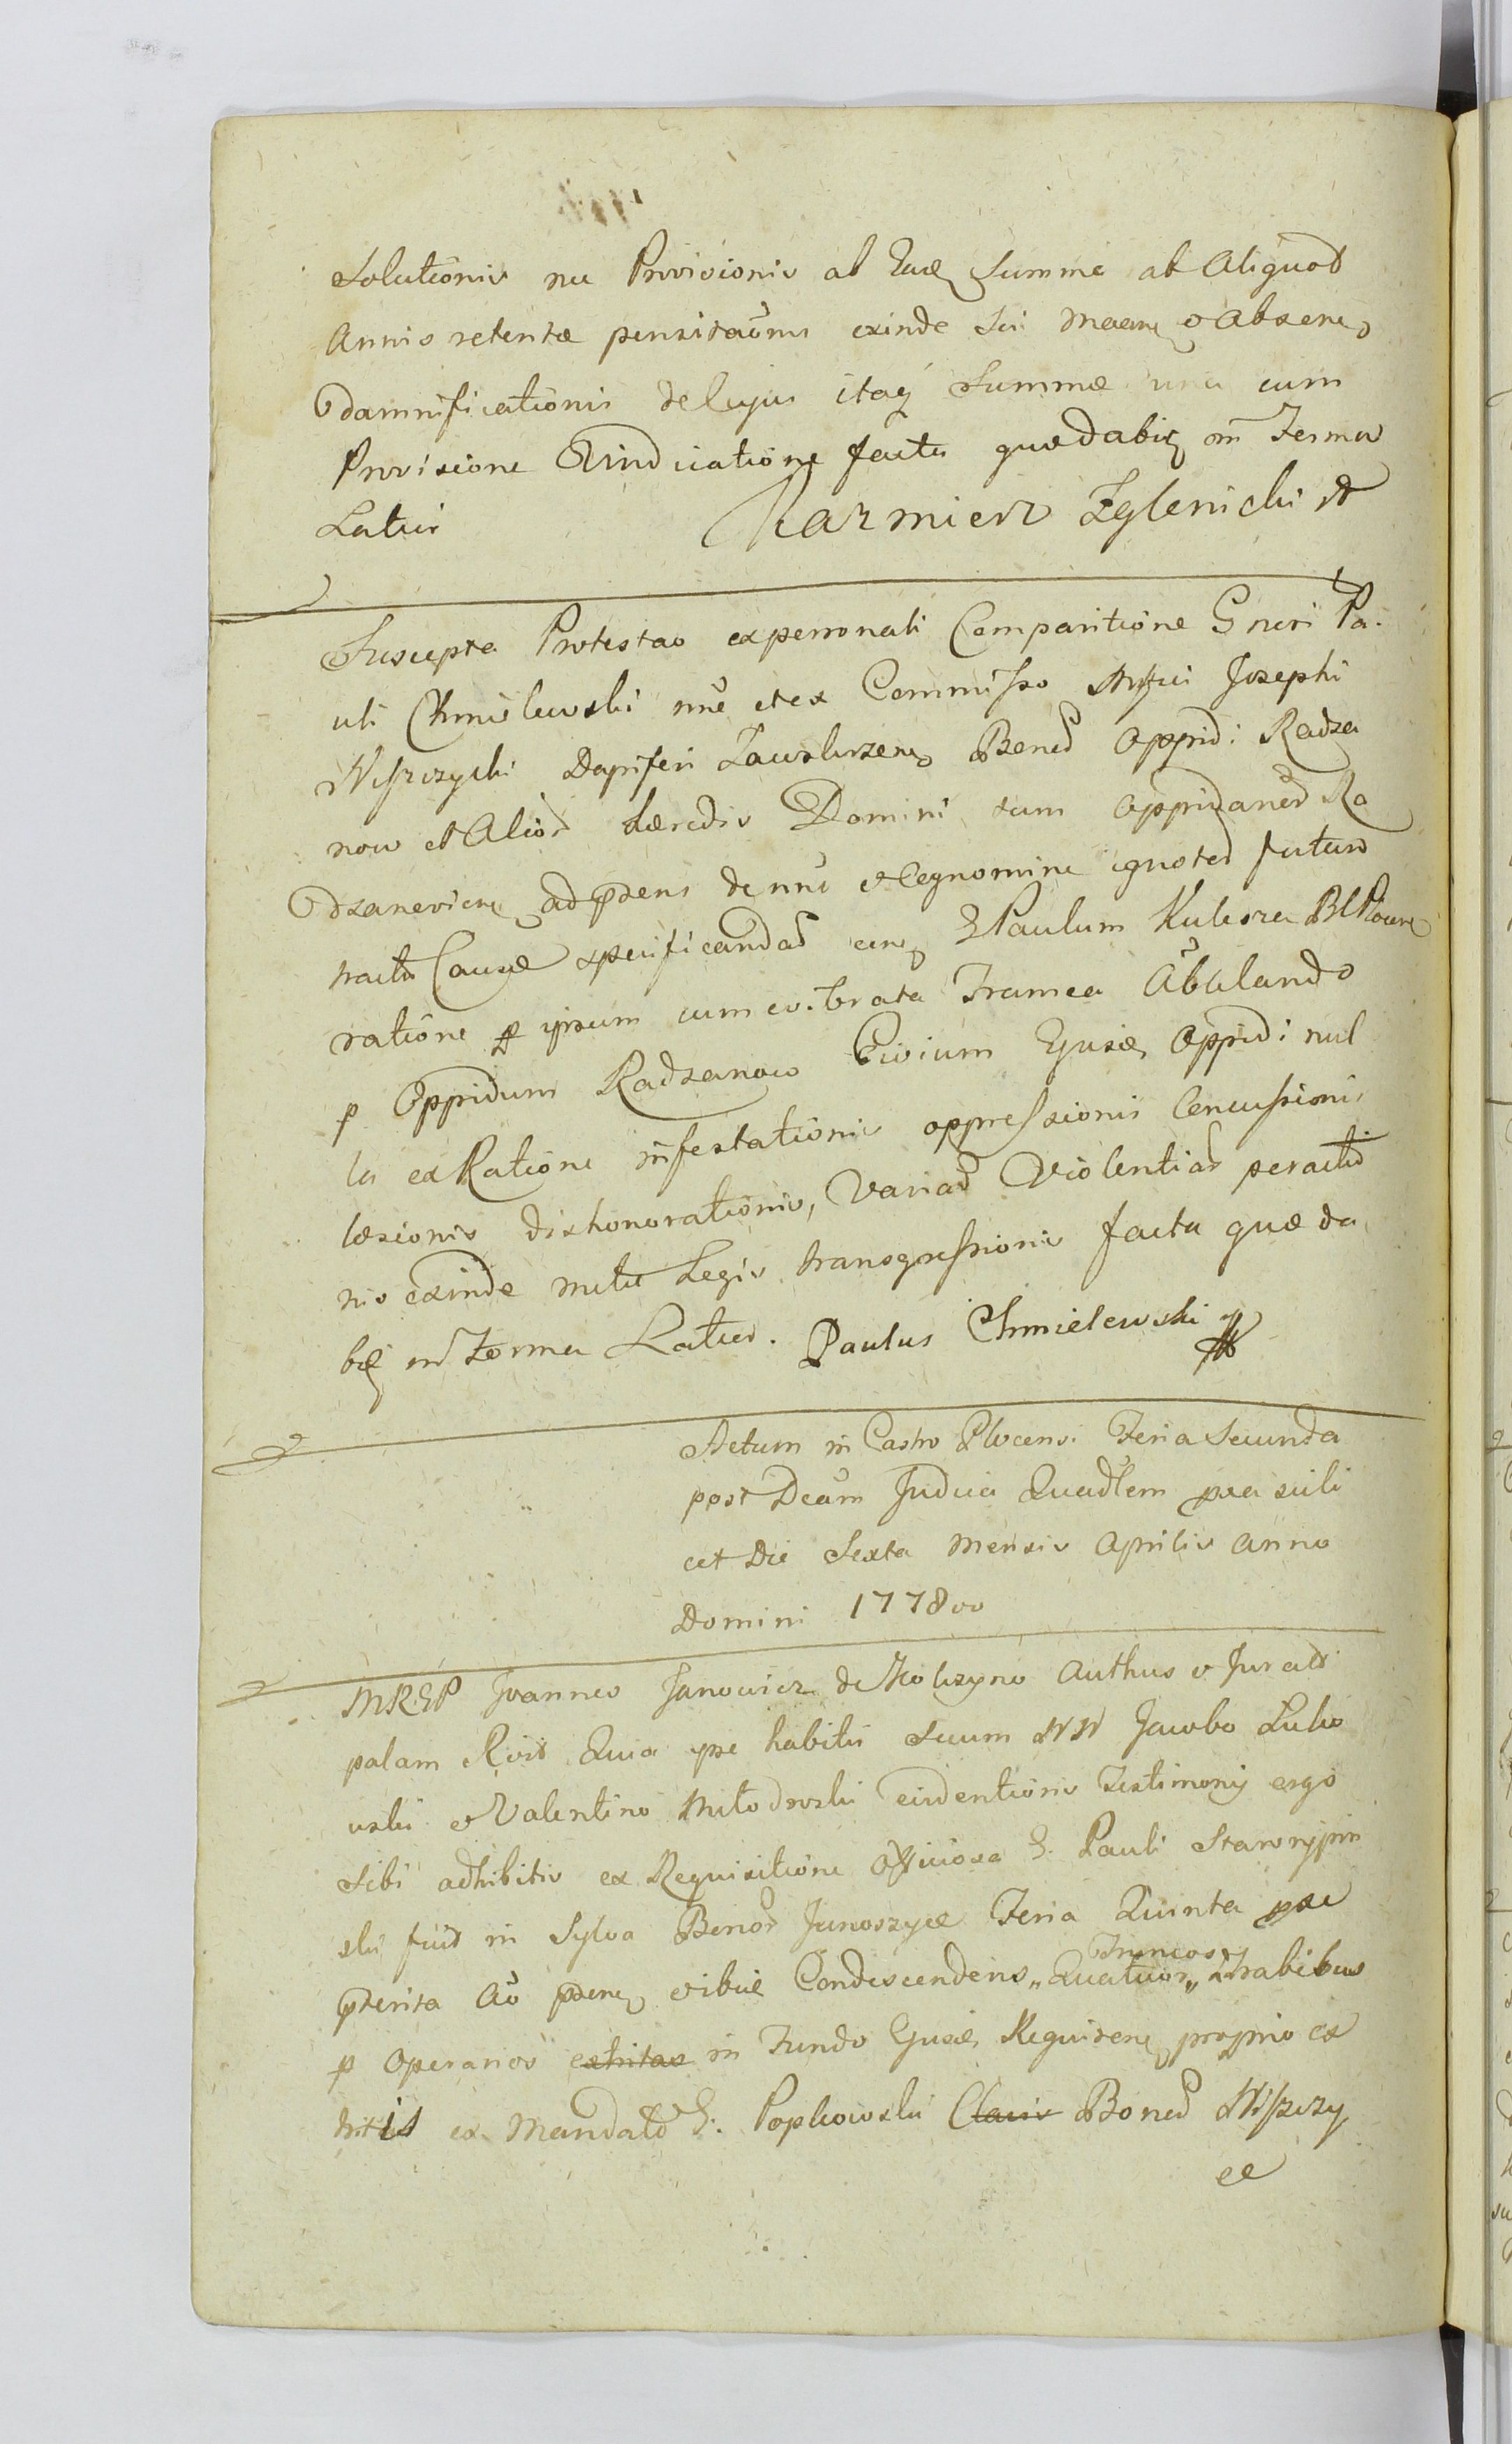 Solutionis nec Provisionis ab Eadē Summa ab Aliquod
Annis retentæ pensitaōnis exinde Sui et
damnificationis de Cujus itaq Summæ una cum
Provisione Vindicatione facta quæ dabit in Forma
Latius Kazmierz Zglenicki
Suscepta Protestao ex personali Comparitione Gneri Pa.
uli Chmielewski nne et ex Commisso Mfici Josephi
Nisczycki Dapiferi Zawskrzen Bonoɍ Oppidi Radza
now et Alioɍ Hæredis Domini cum Oppidaneɍ Ra
dzanovien ad præsens de nni et Cognomine ignoteɍ futuro
tractu Causæ specificandaɍ
ratione per ipsum cum evibrata Framea Ābulando
p Oppidum Radzanow Civium Ejusdē Oppidi nul
la ex Ratione infestationis oppressionis Concussionis
læsionis dishonorationis, Variaɍ Violentiaɍ peractio
nis exinde metu Legis transgressionis facta quæ da
bit in Forma Latius. Paulus Chmielewski
Actum in Castro Plocensi Feria Secunda
post Dcam Judica Quadlem pxa scili
cet Die Sexta Mensis Aprilis Anno
Domini 1778vo
MREP Joannes Janowicz de Kolczyno Authus et Juratus
palam Rvit Quia ipse habitis Secum NN Jacobo
et Valentino Młodowski evidentioris Testimonij ergo
sibi adhibitis ex Requisitione Officiosa G. Pauli Starorypin
ski fuit in Sylva Bonoɍ Junoszyce Feria Quinta pxe
præterita Aō præsen Condescendens "Quatuor" Truncos trabibus
p Operarios exhitas in Fundo Ejusdē Requiren proprio ex
hitis ex Mandato G. Popkowski Bonoɍ Nisczy
ce